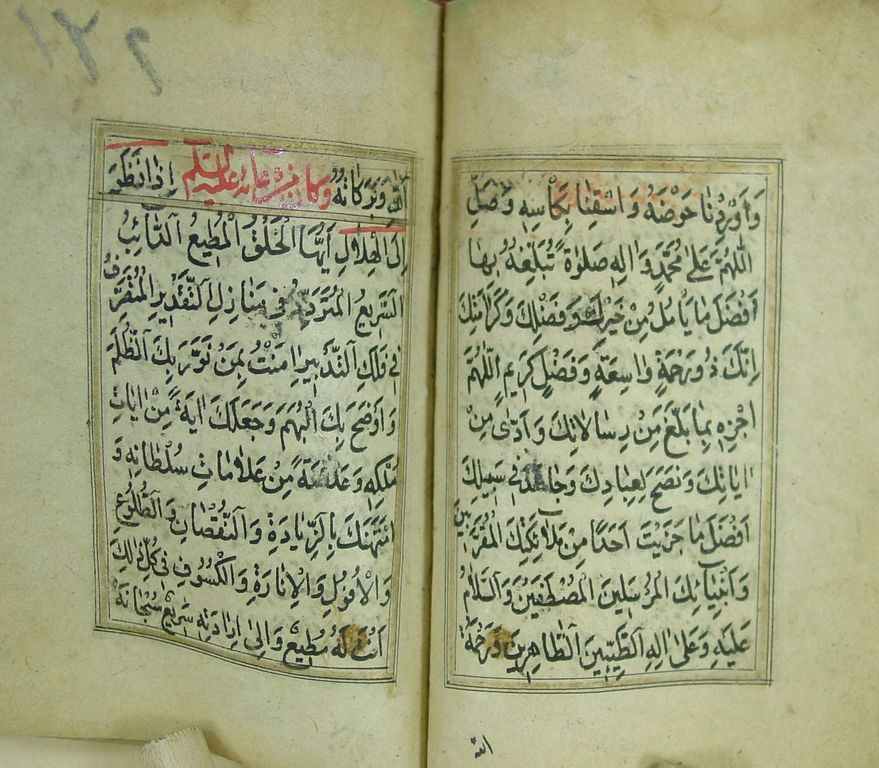 وَاَوْرِدْنَا حَوْضَهُ وَاسْقِنَا بِكَاْسِهِ وَصَلِّ
اللّٰهُمَّ عَلٰى مُحَمَّدٍ وَاٰلِهِ صَلٰوةً تُبَلِّغُهُ بِهَا
اَفْضَلَ مَا يَاْمُلُ مِنْ خَيْرِكَ وَفَضْلِكَ وَكَرَامَتِكَ
اِنَّكَ ذُو رَحْمَةٍ وَاسِعَةٍ وَفَضْلٍ كَرِيمٍ اَللّٰهُمَّ
اجْزِهِ بِمَا بَلَّغَ مِنْ رِسَالَاتِكَ وَاَدّٰى مِنْ
اٰيَاتِكَ وَنَصَحَ لِعِبَادِكَ وَجَاهَدَ فِي سَبِيلِكَ
اَفْضَلَ مَا جَزَيْتَ اَحَدًا مِنْ مَلَائِكَتِكَ الْمُقَرَّبِينَ
وَاَنْبِيَائِكَ الْمُرْسَلِينَ الْمُصْطَفَيْنَ وَالسَّلَامُ
عَلَيْهِ وَعَلٰى اٰلِهِ الطَّيِّبِينَ الطَّاهِرِينَ وَرَحْمَةُ
الله
اللّٰهِ وَبَرَكَاتُهُ وَكَانَ مِنْ دُعَائِهِ عَلَيْهِ السَّلَم اِذَا نَظَرَ
اِلَى الْهِلَالِ اَيُّهَا الْخَلْقُ الْمُطِيعُ الدَّائِبُ
السَّرِيعُ الْمُتَرَدِّدُ فِي مَنَازِلِ التَّقْدِيرِ الْمُتَصَرِّفُ
فِي فَلَكِ التَّدْبِيرِ اٰمَنْتُ بِمَنْ نَوَّرَ بِكَ الظُّلَمَ
وَاَوْضَحَ بِكَ الْبُهَمَ وَجَعَلَكَ اٰيَةً مِنْ اٰيَاتِ
مُلْكِهِ وَعَلَامَةً مِنْ عَلَامَاتِ سُلْطَانِهِ وَ
امْتَهَنَكَ بِالزِّيَادَةِ وَالنُّقْصَانِ وَالطُّلُوعِ
وَالْاُفُولِ وَالْاِنَارَةِ وَالْكُسُوفِ فِي كُلِّ ذٰلِكَ
اَنْتَ لَهُ مُطِيعٌ وَاِلٰى اِرَادَتِهِ سَرِيعٌ سُبْحَانَهُ